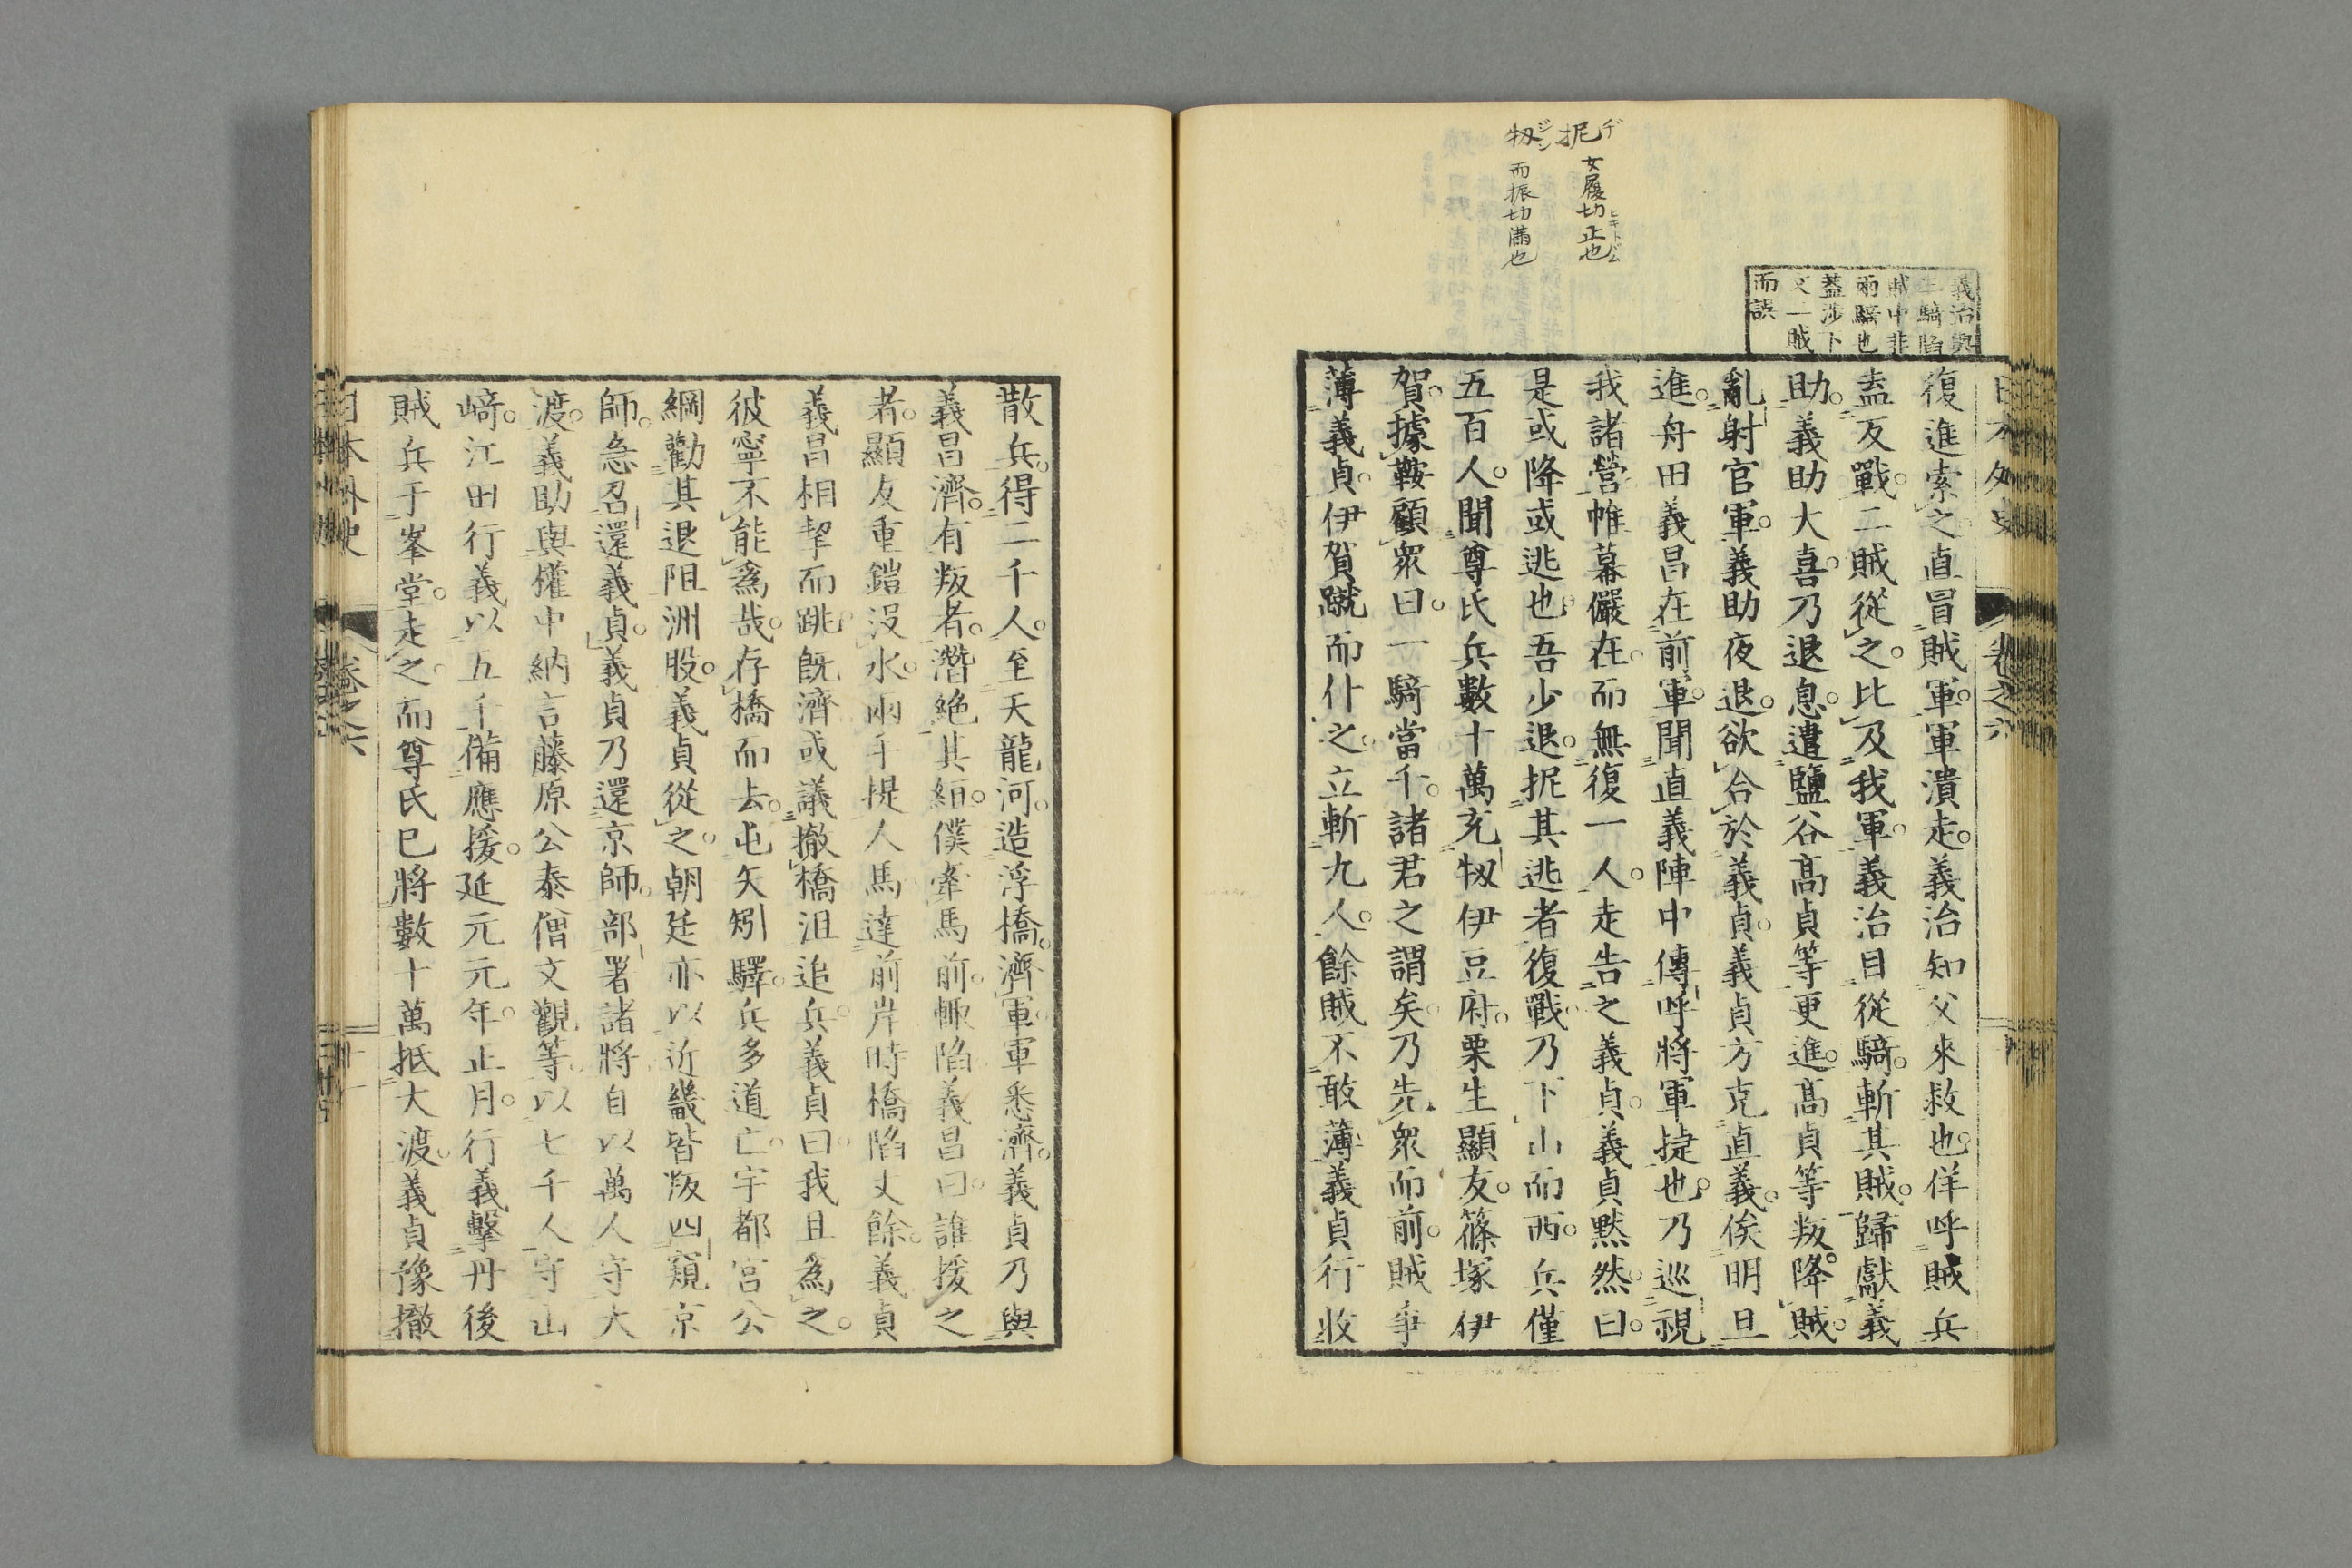 抳 女履切止也
デ
ヒキトドム
牣 而振切滿也
ジン
義治與
三騎陷
賊中非
兩騎也
蓋渉下
文一賊
而誤
日本外史 卷之六
復進索之直冒賊軍。軍潰走。義治知父來救也。佯呼賊兵
盍反戰。二賊從之。比及我軍。義治目從騎。斬其賊。歸獻義
助。義助大喜。乃退息。遣鹽谷高貞等更進。高貞等叛降賊。
亂射官軍。義助夜退。欲合於義貞。義貞方克直義。俟明旦
進。舟田義昌在前軍。聞直義陣中傳呼將軍捷也。乃巡視
我諸營帷幕儼在。而無復一人。走告之義貞。義貞黙然曰。
是或降或逃也。吾少退。抳其逃者復戰。乃下山而西。兵僅
五百人。聞尊氏兵數十萬充牣伊豆府。栗生顯友。篠塚伊
賀。據鞍顧衆曰。一騎當千。諸君之謂矣。乃先衆而前。賊爭
薄義貞。伊賀蹴而仆之。立斬九人。餘賊不敢薄義貞行收
散兵。得二千人。至天龍河。造浮橋。濟軍。軍悉濟。義貞乃與
義昌濟。有叛者。潛絶其絙。僕牽馬前。輙陷。義昌曰。誰援之
者。顯友重鎧沒水。兩手提人馬達前岸。時橋陷丈餘。義貞
義昌相挈而跳。既濟。或議撤橋沮追兵。義貞曰。我且爲之。
彼寧不能爲哉。存橋而去。屯矢矧驛。兵多道亡。宇都宮公
綱勸其退阻洲股。義貞從之。朝廷亦以近畿皆叛四窺京
師。急召還義貞。義貞乃還京師。部署諸將。自以萬人守大
渡。義助與權中納言藤原公泰僧文觀等。以七千人守山
﨑。江田行義以五千備應援。延元元年。正月。行義擊丹後
賊兵于峯堂。走之。而尊氏已將數十萬抵大渡。義貞豫撤
日本外史 卷之六